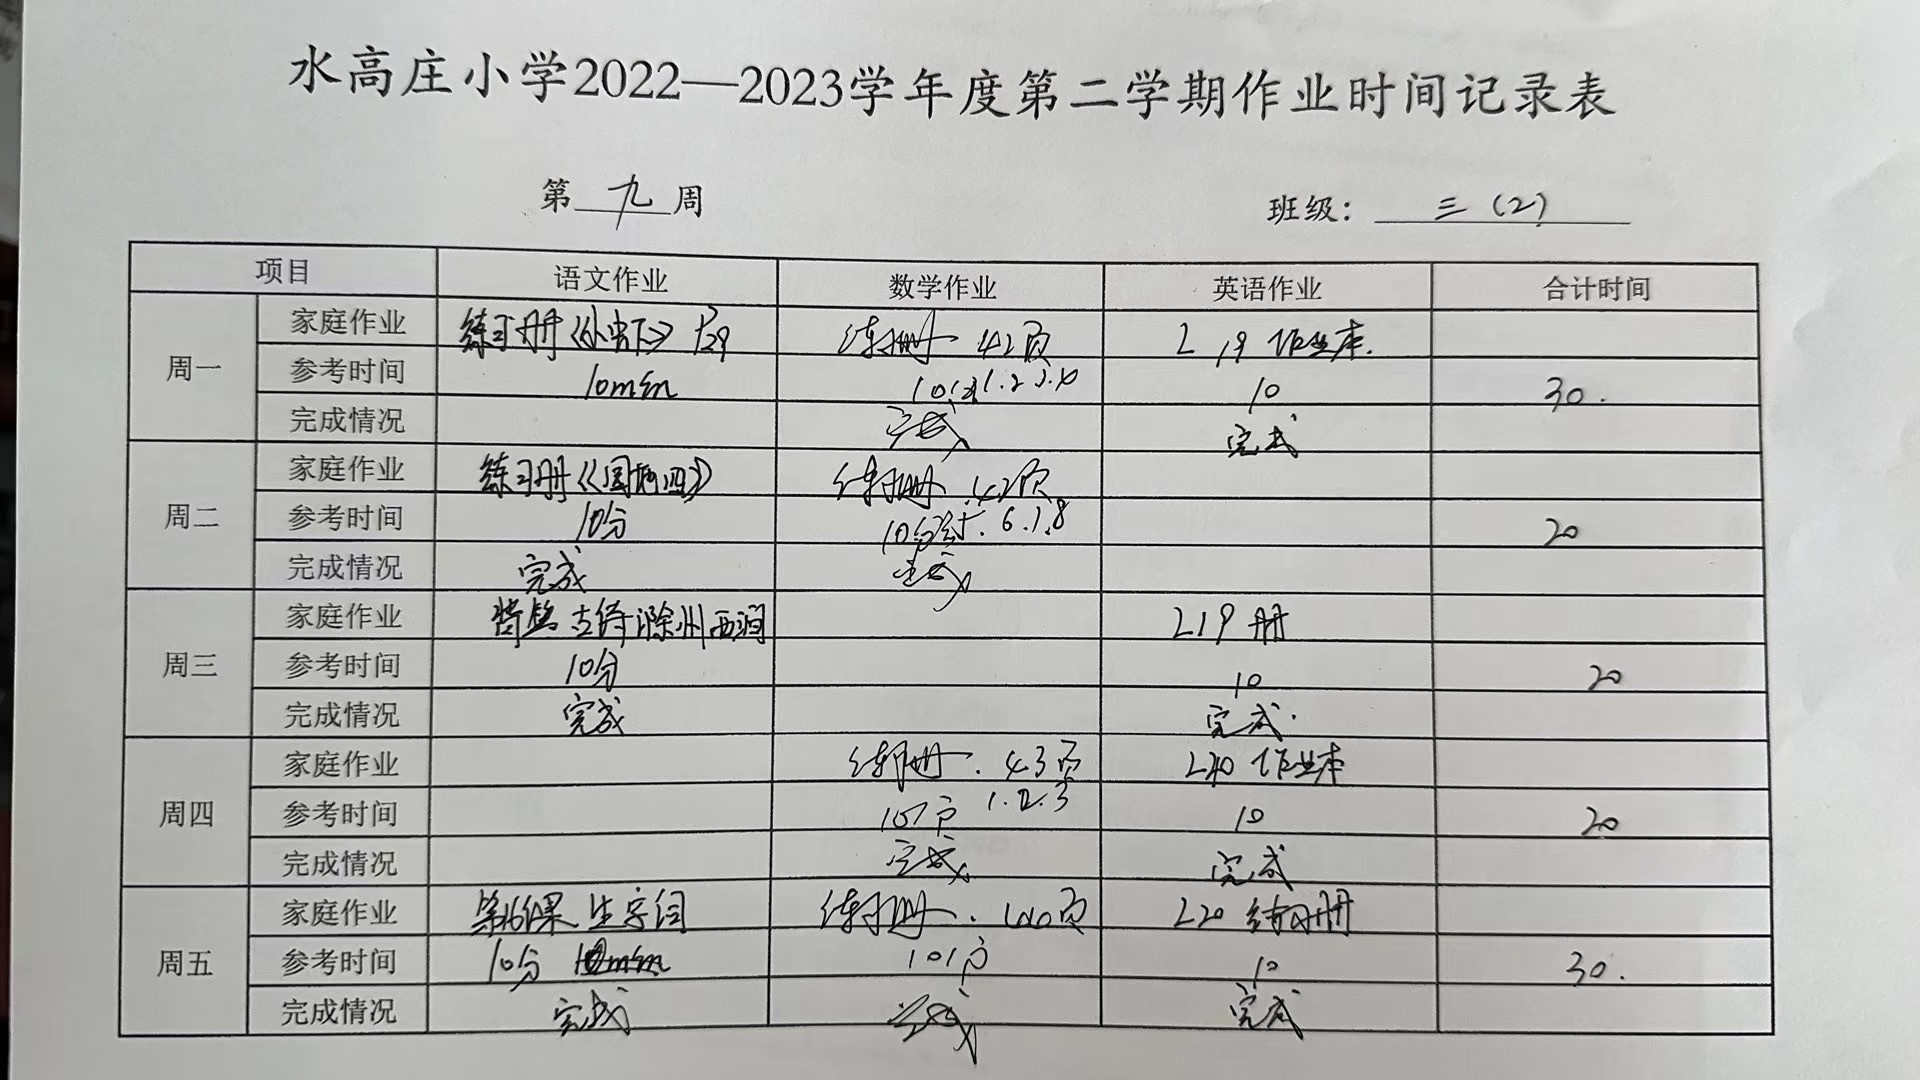 水高庄小学2022—2023学年度第二学期作业时间记录表
第 九 周 班级： 三（2）
项目 语文作业 数学作业 英语作业 合计时间
周一 家庭作业 练习册 P29 练习册 42页 L19 作业本.
参考时间 10min 10 10 30.
完成情况 完成 完成
周二 家庭作业 练习册 练习册 42页
参考时间 10分 10分 6.7.8 20
完成情况 完成 完成
周三 家庭作业 古诗滁州西涧 L19 册
参考时间 10分 10 20
完成情况 完成 完成.
周四 家庭作业 练习册. 43页 L20 作业本
参考时间 1.2.3 10 20
完成情况 完成 完成
周五 家庭作业 第16课 生字词 练习册. 页 L20 练习册
参考时间 10分 10 30.
完成情况 完成 完成 完成